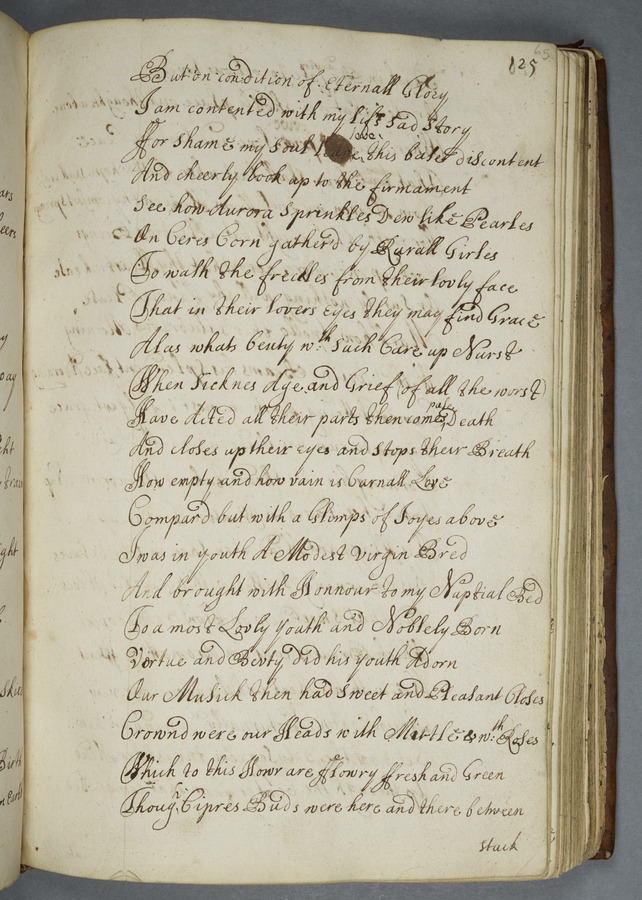 65
125
But on condition of Eternall Glory
I am contented with my lifs sad story
ffor shame my soul leave this baser discontent
And cheerly look up to the firmament
See how Aurora Sprinkles Dew like Pearles
On Ceres Corn gatherd by Rurall Girles
To wash the freckles from their lovly face
That in their lovers eyes they may find Grace
Alas whats beuty wth such Care up Nurst
When Sicknes Age and Grief (of all the worst)
Have Acted all their parts then comes pale Death
And closes up their eyes and stops their Breath
How empty and how vain is Carnall Love
Compard but with a Glimps of Joyes above
I was in youth A Modest Virgin Bred
And brought with Honnour to my Nuptial Bed
To a most Lovly youth and Noblely Born
Vertue and Bevty did his youth Adorn
Our Musick then had sweet and Pleasant Closes
Crownd were our Heads with Mirtle & wth Roses
Which to this Howr are fflowry ffresh and Green
Though Cipres Buds were here and there between
stuck